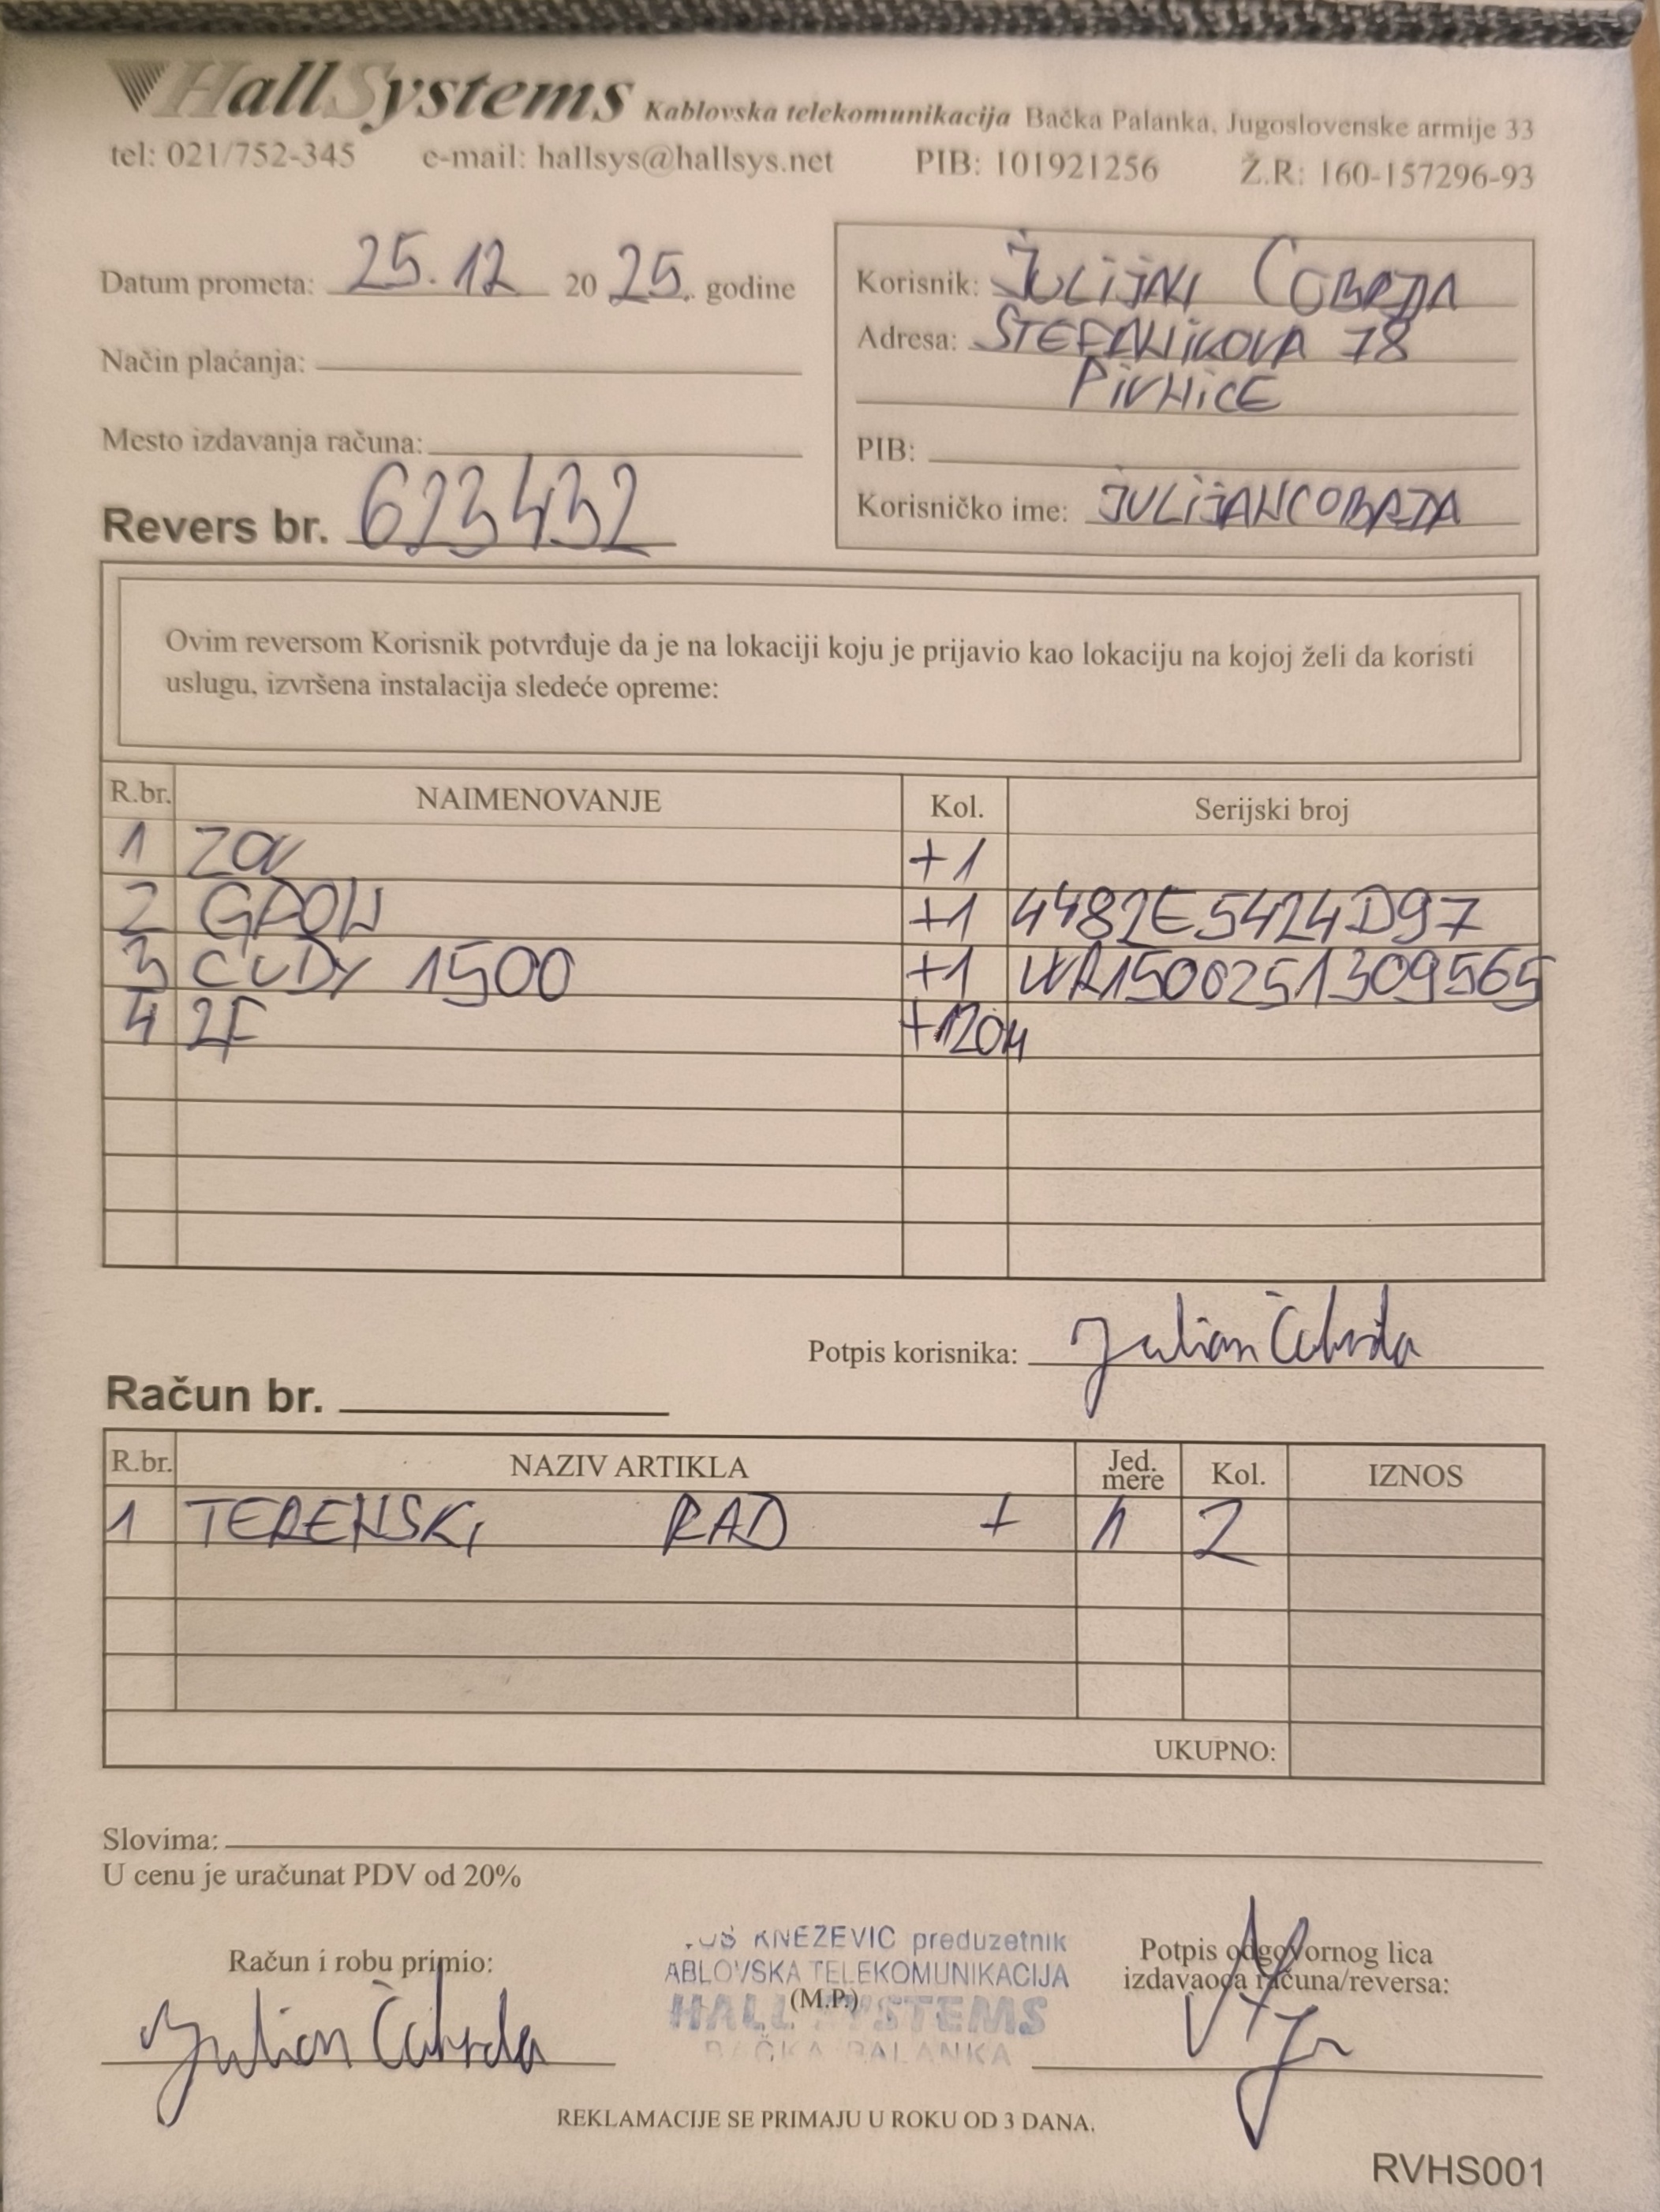 HallSystems Kablovska telekomunikacija Bačka Palanka, Jugoslovenske armije 33
tel: 021/752-345 e-mail: hallsys@hallsys.net PIB: 101921256 Ž.R: 160-157296-93
Datum prometa: 25.12 2025. godine
Način plaćanja:
Mesto izdavanja računa:
Revers br. 623432
Korisnik: JULIJAN COBRDA
Adresa: STEFANIKOVA 78
PIVNICE
PIB:
Korisničko ime: JULIJANCOBRDA
Ovim reversom Korisnik potvrđuje da je na lokaciji koju je prijavio kao lokaciju na kojoj želi da koristi
uslugu, izvršena instalacija sledeće opreme:
R.br. NAIMENOVANJE Kol. Serijski broj
1 +1
2 GPON +1 4482E5424D97
3 CUDY 1500 +1 WR1500251309565
4 2F +120M
Potpis korisnika: Julian Čobrda
Račun br.
R.br. NAZIV ARTIKLA Jed. mere Kol. IZNOS
1 TERENSKI RAD + h 2
UKUPNO:
Slovima:
U cenu je uračunat PDV od 20%
Račun i robu primio:
Julian Čobrda
KNEZEVIC preduzetnik
ABLOVSKA TELEKOMUNIKACIJA
(M.P.)
HALL SYSTEMS
BAČKA PALANKA
Potpis odgovornog lica
izdavaoca računa/reversa:
REKLAMACIJE SE PRIMAJU U ROKU OD 3 DANA.
RVHS001